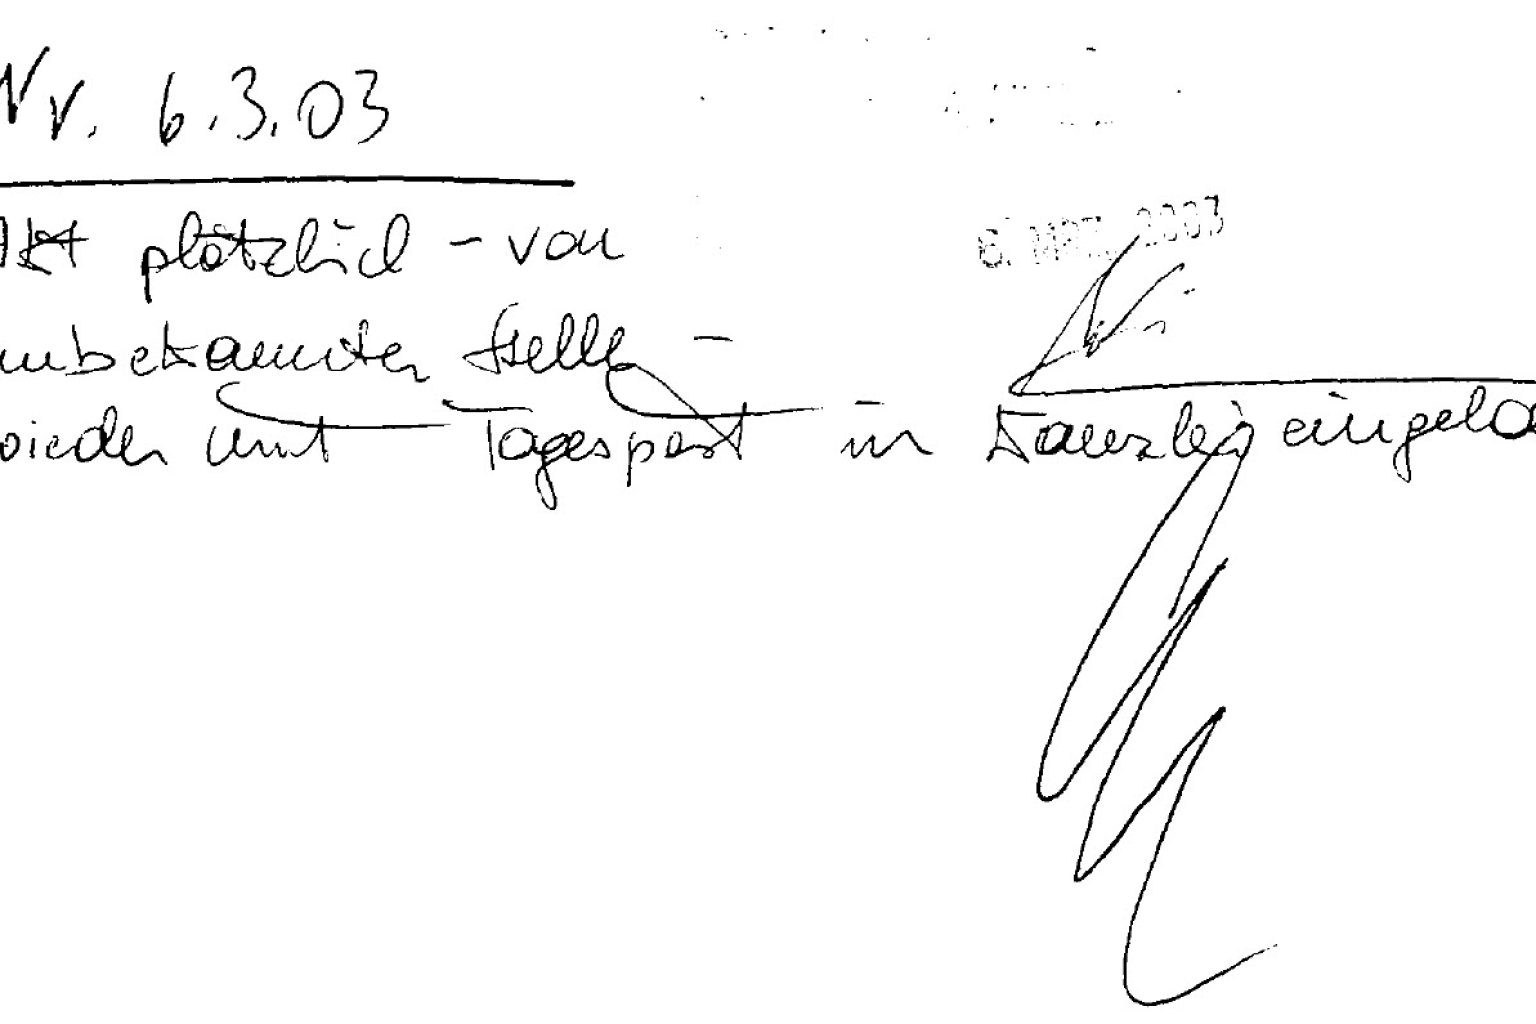 Nr. 6.3.03
6. MRZ. 2003
Akt plötzlich - von
unbekannter Stelle -
wieder mit Tagespost in Kanzlei eingela